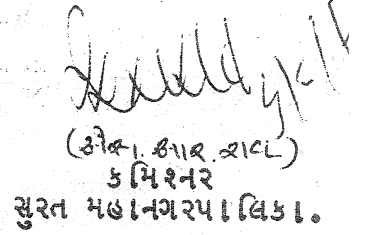 (એસ. આર. રાવ)
કમિશ્નર
સુરત મહાનગરપાલિકા.